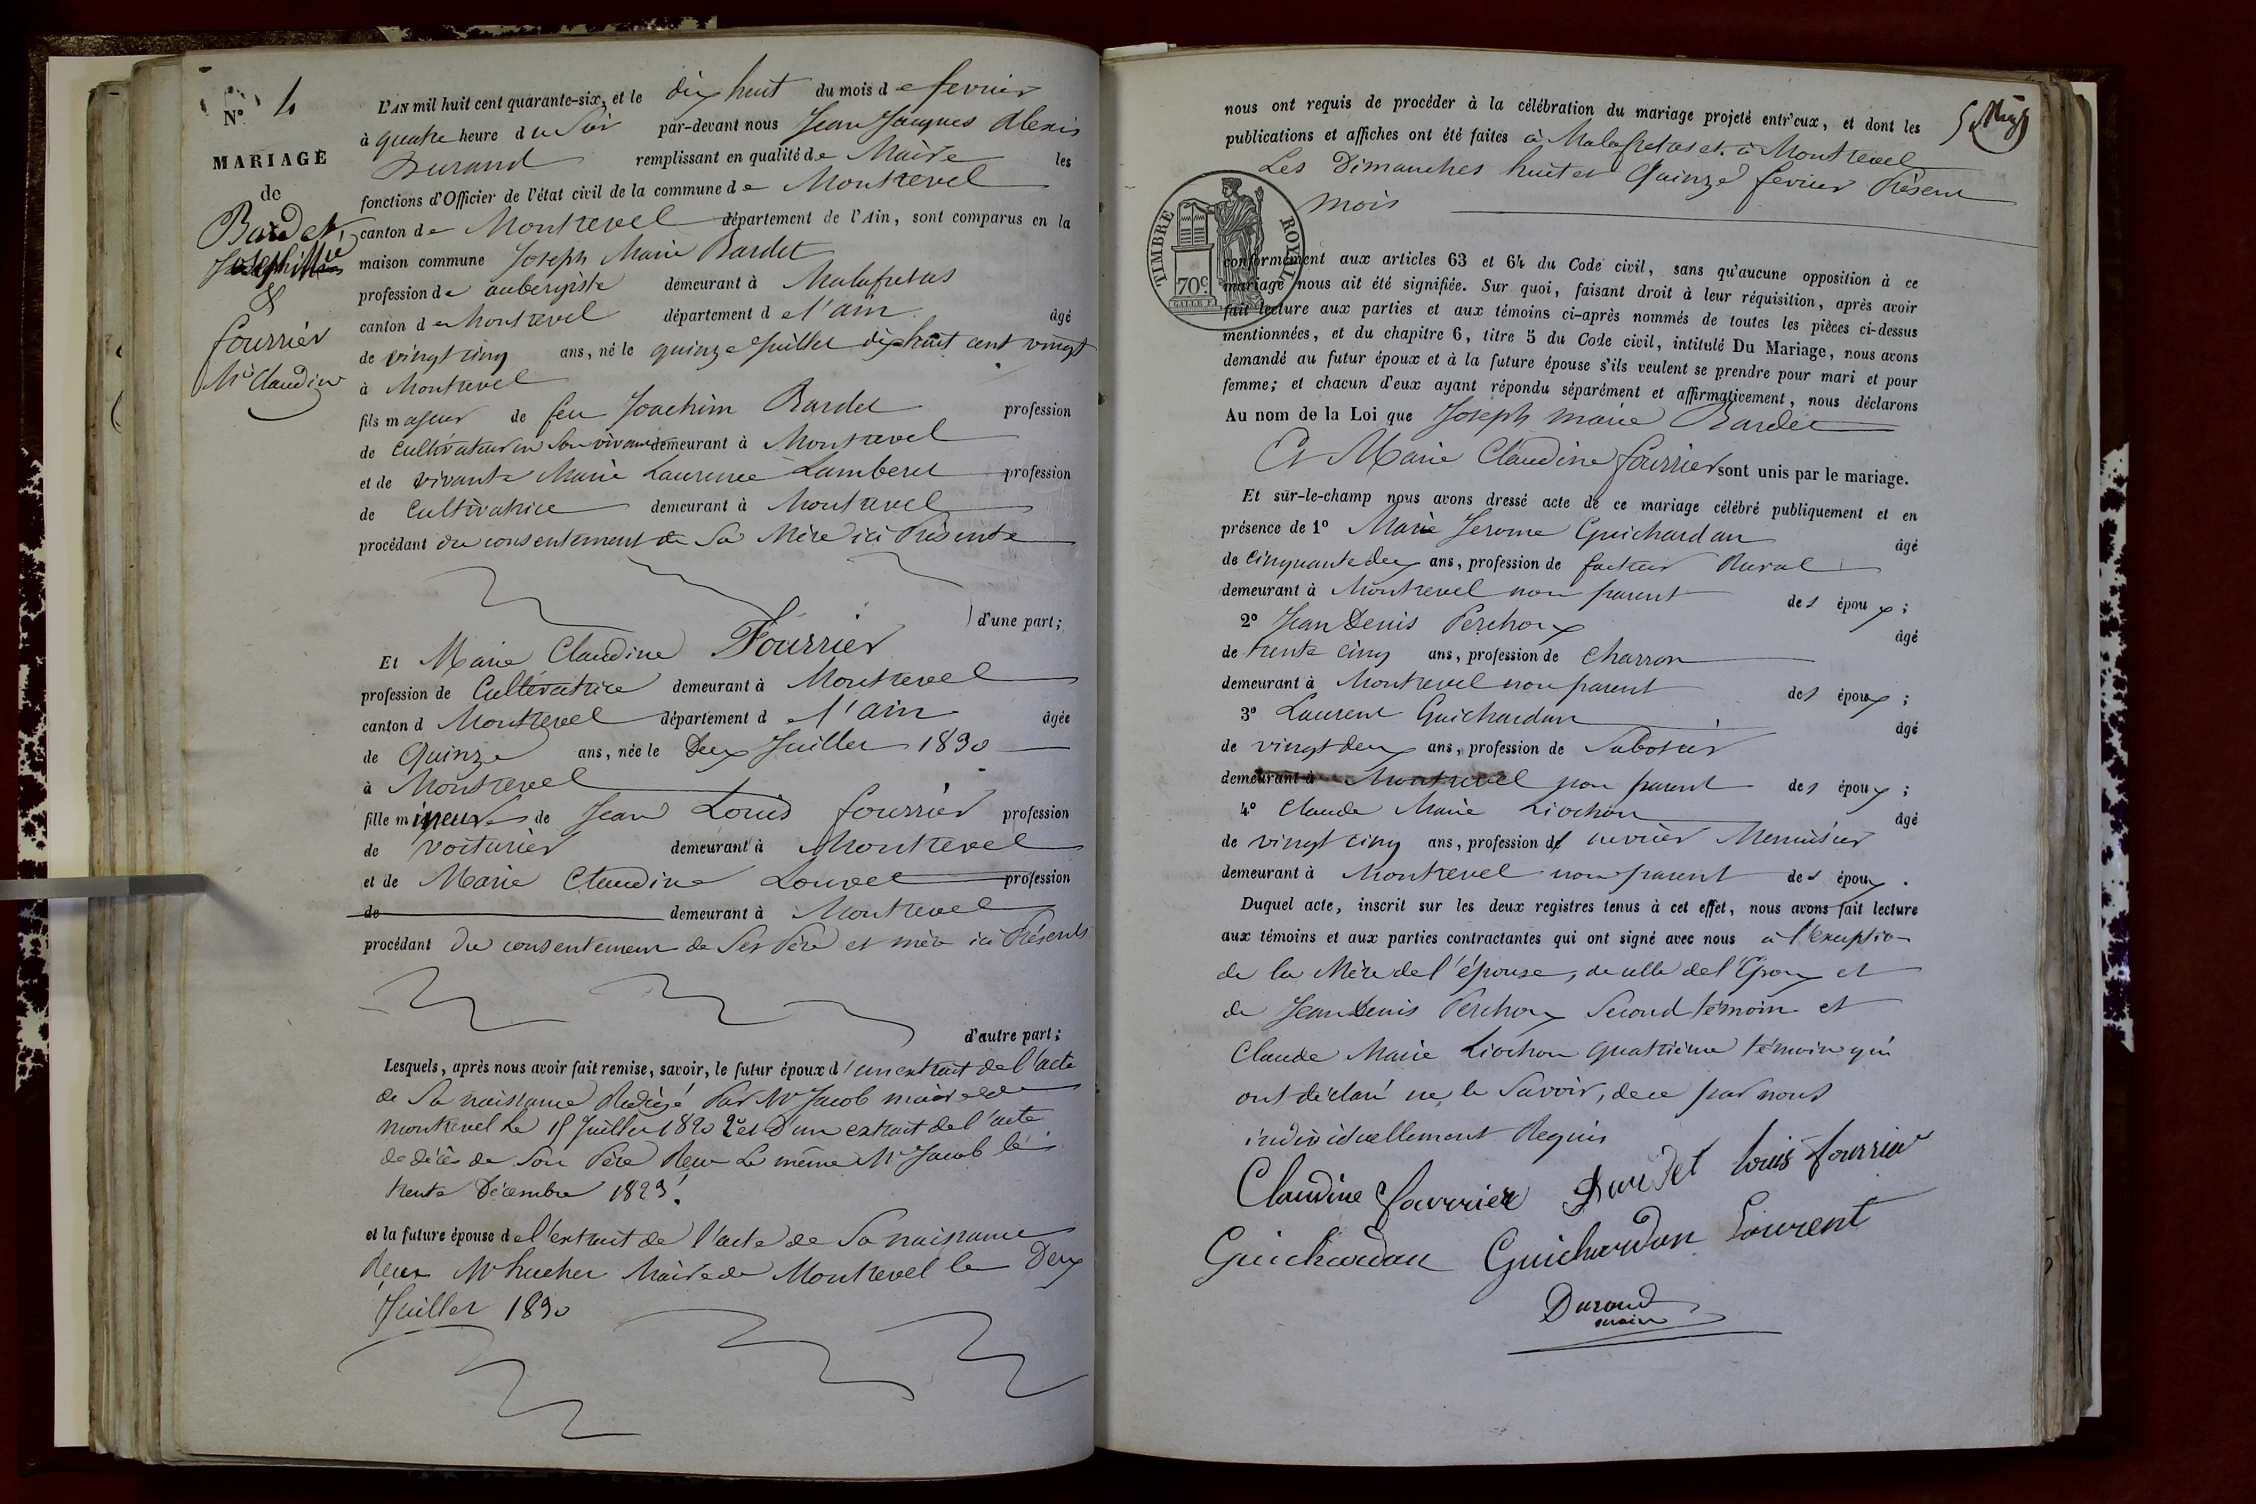 N° 4
MARIAGE
de
Bardet
Joseph Mie
&
fourrier
Mie Claudine
L'AN mil huit cent quarante-six, et le dix huit du mois de fevrier
à quatre heure du Soir par-devant nous Jean Jacques Alexis
Durand remplissant en qualité de Maire les
fonctions d'Officier de l'état civil de la commune de Montrevel
canton de Montrevel département de l'Ain, sont comparus en la
maison commune Joseph Marie Bardet
profession de aubergiste demeurant à Malafretas
canton de Montrevel département de l'ain âgé
de vingt cinq ans, né le quinze Juillet dix huit cent vingt
à Montrevel
fils majeur de feu Joachim Bardet profession
de Cultivateur en son vivant demeurant à Montrevel
et de vivante Marie Laurence Lamberet profession
de Cultivatrice demeurant à Montrevel
procédant du consentement de Sa Mère ici Présente
d'une part;
Et Marie Claudine Fourrier
profession de Cultivatrice demeurant à Montrevel
canton d Montrevel département d el'ain âgée
de Quinze ans, née le Deux Juillet 1830
à Montrevel
fille mineure de Jean Louis fourrier profession
de voiturier demeurant à Montrevel
et de Marie Claudine Louvet profession
de demeurant à Montrevel
procédant du consentement de Ses Père et mère ici Présents
d'autre part;
Lesquels, après nous avoir fait remise, savoir, le futur époux d'un extrait de l'acte
de Sa naissance Rédigé Par Mr Jacob maire de
montrevel le 15 Juillet 1820 2° et D'un extrait de l'acte
de décès de Son Père Reçu Le même Mr Jacob le
trente Décembre 1823.
et la future épouse de l'extrait de l'acte de Sa naissance
Reçu Mr hucher Maire de Montrevel le Deux
Juillet 1830
nous ont requis de procéder à la célébration du mariage projeté entr'eux, et dont les
publications et affiches ont été faites à Malafretas et à Montrevel
Les Dimanches huit et Quinze fevrier Présent
mois
TIMBRE ROYAL
70c
conformément aux articles 63 et 64 du Code civil, sans qu'aucune opposition à ce
mariage nous ait été signifiée. Sur quoi, faisant droit à leur réquisition, après avoir
fait lecture aux parties et aux témoins ci-après nommés de toutes les pièces ci-dessus
mentionnées, et du chapitre 6, titre 5 du Code civil, intitulé Du Mariage, nous avons
demandé au futur époux et à la future épouse s'ils veulent se prendre pour mari et pour
femme; et chacun d'eux ayant répondu séparément et affirmativement, nous déclarons
Au nom de la Loi que Joseph marie Bardet
Et Marie Claudine fourrier sont unis par le mariage.
Et sur-le-champ nous avons dressé acte de ce mariage célébré publiquement et en
présence de 1° Marie Jerome Guichardan âgé
de Cinquante deux ans, profession de facteur Rural
demeurant à Montrevel non parent des époux;
2° Jean Denis Perchoux âgé
de trente cinq ans, profession de Charron
demeurant à Montrevel non parent des époux;
3° Laurent Guichardan âgé
de vingt deux ans, profession de Sabotier
demeurant à Montrevel non parent des époux;
4° Claude Marie Liochon âgé
de vingt cinq ans, profession d'ouvrier Menuisier
demeurant à Montrevel non parent des époux.
Duquel acte, inscrit sur les deux registres tenus à cet effet, nous avons fait lecture
aux témoins et aux parties contractantes qui ont signé avec nous à l'exception
de la Mère de l'épouse, de celle de l'Epoux et
de Jean Denis Perchoux Second témoin et
Claude Marie Liochon quatrième témoin qui
ont déclaré ne le Savoir, de ce par nous
individuellement Requis
Claudine fourrier Bardet Louis fourrier
Guichardan Guichardan Laurent
Durand
maire